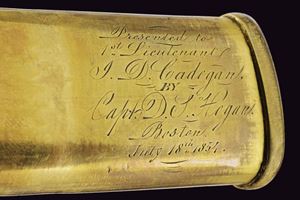 Presented to
1st Lieutenant
J. D. Cadogan,
BY
Capt. D. S. Hogan,
Boston,
July 18th 1854.